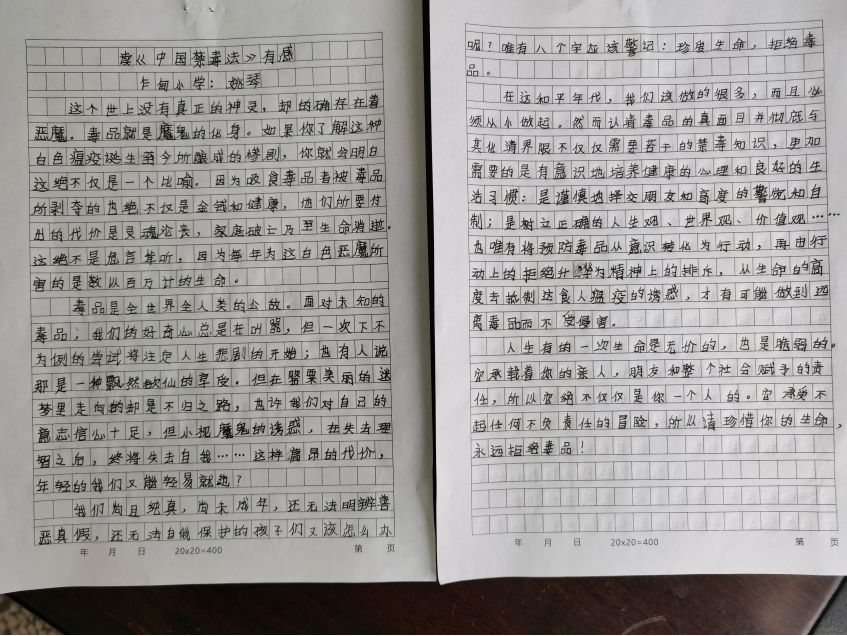 读《中国禁毒法》有感
卡甸小学：姚琴
这个世上没有真正的神灵，却的确存在着
恶魔。毒品就是魔鬼的化身。如果你了解这种
白色瘟疫诞生至今所酿成的惨剧，你就会明白
这绝不仅是一个比喻。因为吸食毒品者被毒品
所剥夺的也绝不仅是金钱和健康，他们所要付
出的代价是灵魂沦丧，家庭破亡及至生命消逝。
这绝不是危言耸听，因为每年为这白色恶魔所
害的是数以百万计的生命。
毒品是全世界全人类的公敌。面对未知的
毒品；我们的好奇心总是在叫嚣，但一次下不
为例的尝试将注定人生悲剧的开始；也有人说
那是一种飘然欲仙的享受。但在罂粟美丽的迷
梦里走向的却是不归之路，也许我们对自己的
意志信心十足，但小视魔鬼的诱惑，在失去理
智之后，终将失去自我……这样高昂的代价，
年轻的我们又能轻易就范？
我们均且纯真，尚未成年，还无法明辨善
恶真假，还无法自我保护的孩子们又该怎么办
呢？唯有八个字应该警记：珍爱生命，拒绝毒
品。
在这和平年代，我们该做的很多，而且必
须从小做起。然而认清毒品的真面目并彻底与
其化清界限不仅仅需要若干的禁毒知识，更加
需要的是有意识地培养健康的心理和良好的生
活习惯：是谨慎地择交朋友和高度的警觉和自
制；是树立正确的人生观、世界观、价值观……
也唯有将预防毒品从意识转化为行动，再由行
动上的拒绝升华为精神上的排斥，从生命的高
度去抵制这食人瘟疫的诱惑，才有可能做到远
离毒品而不受侵害。
人生有的一次生命是无价的，也是脆弱的。
它承载着你的亲人，朋友和整个社会赋予的责
任，所以它绝不仅仅是你一个人的。它承受不
起任何不负责任的冒险，所以请珍惜你的生命，
永远拒绝毒品！
年 月 日 20x20=400 第 页
年 月 日 20x20=400 第 页